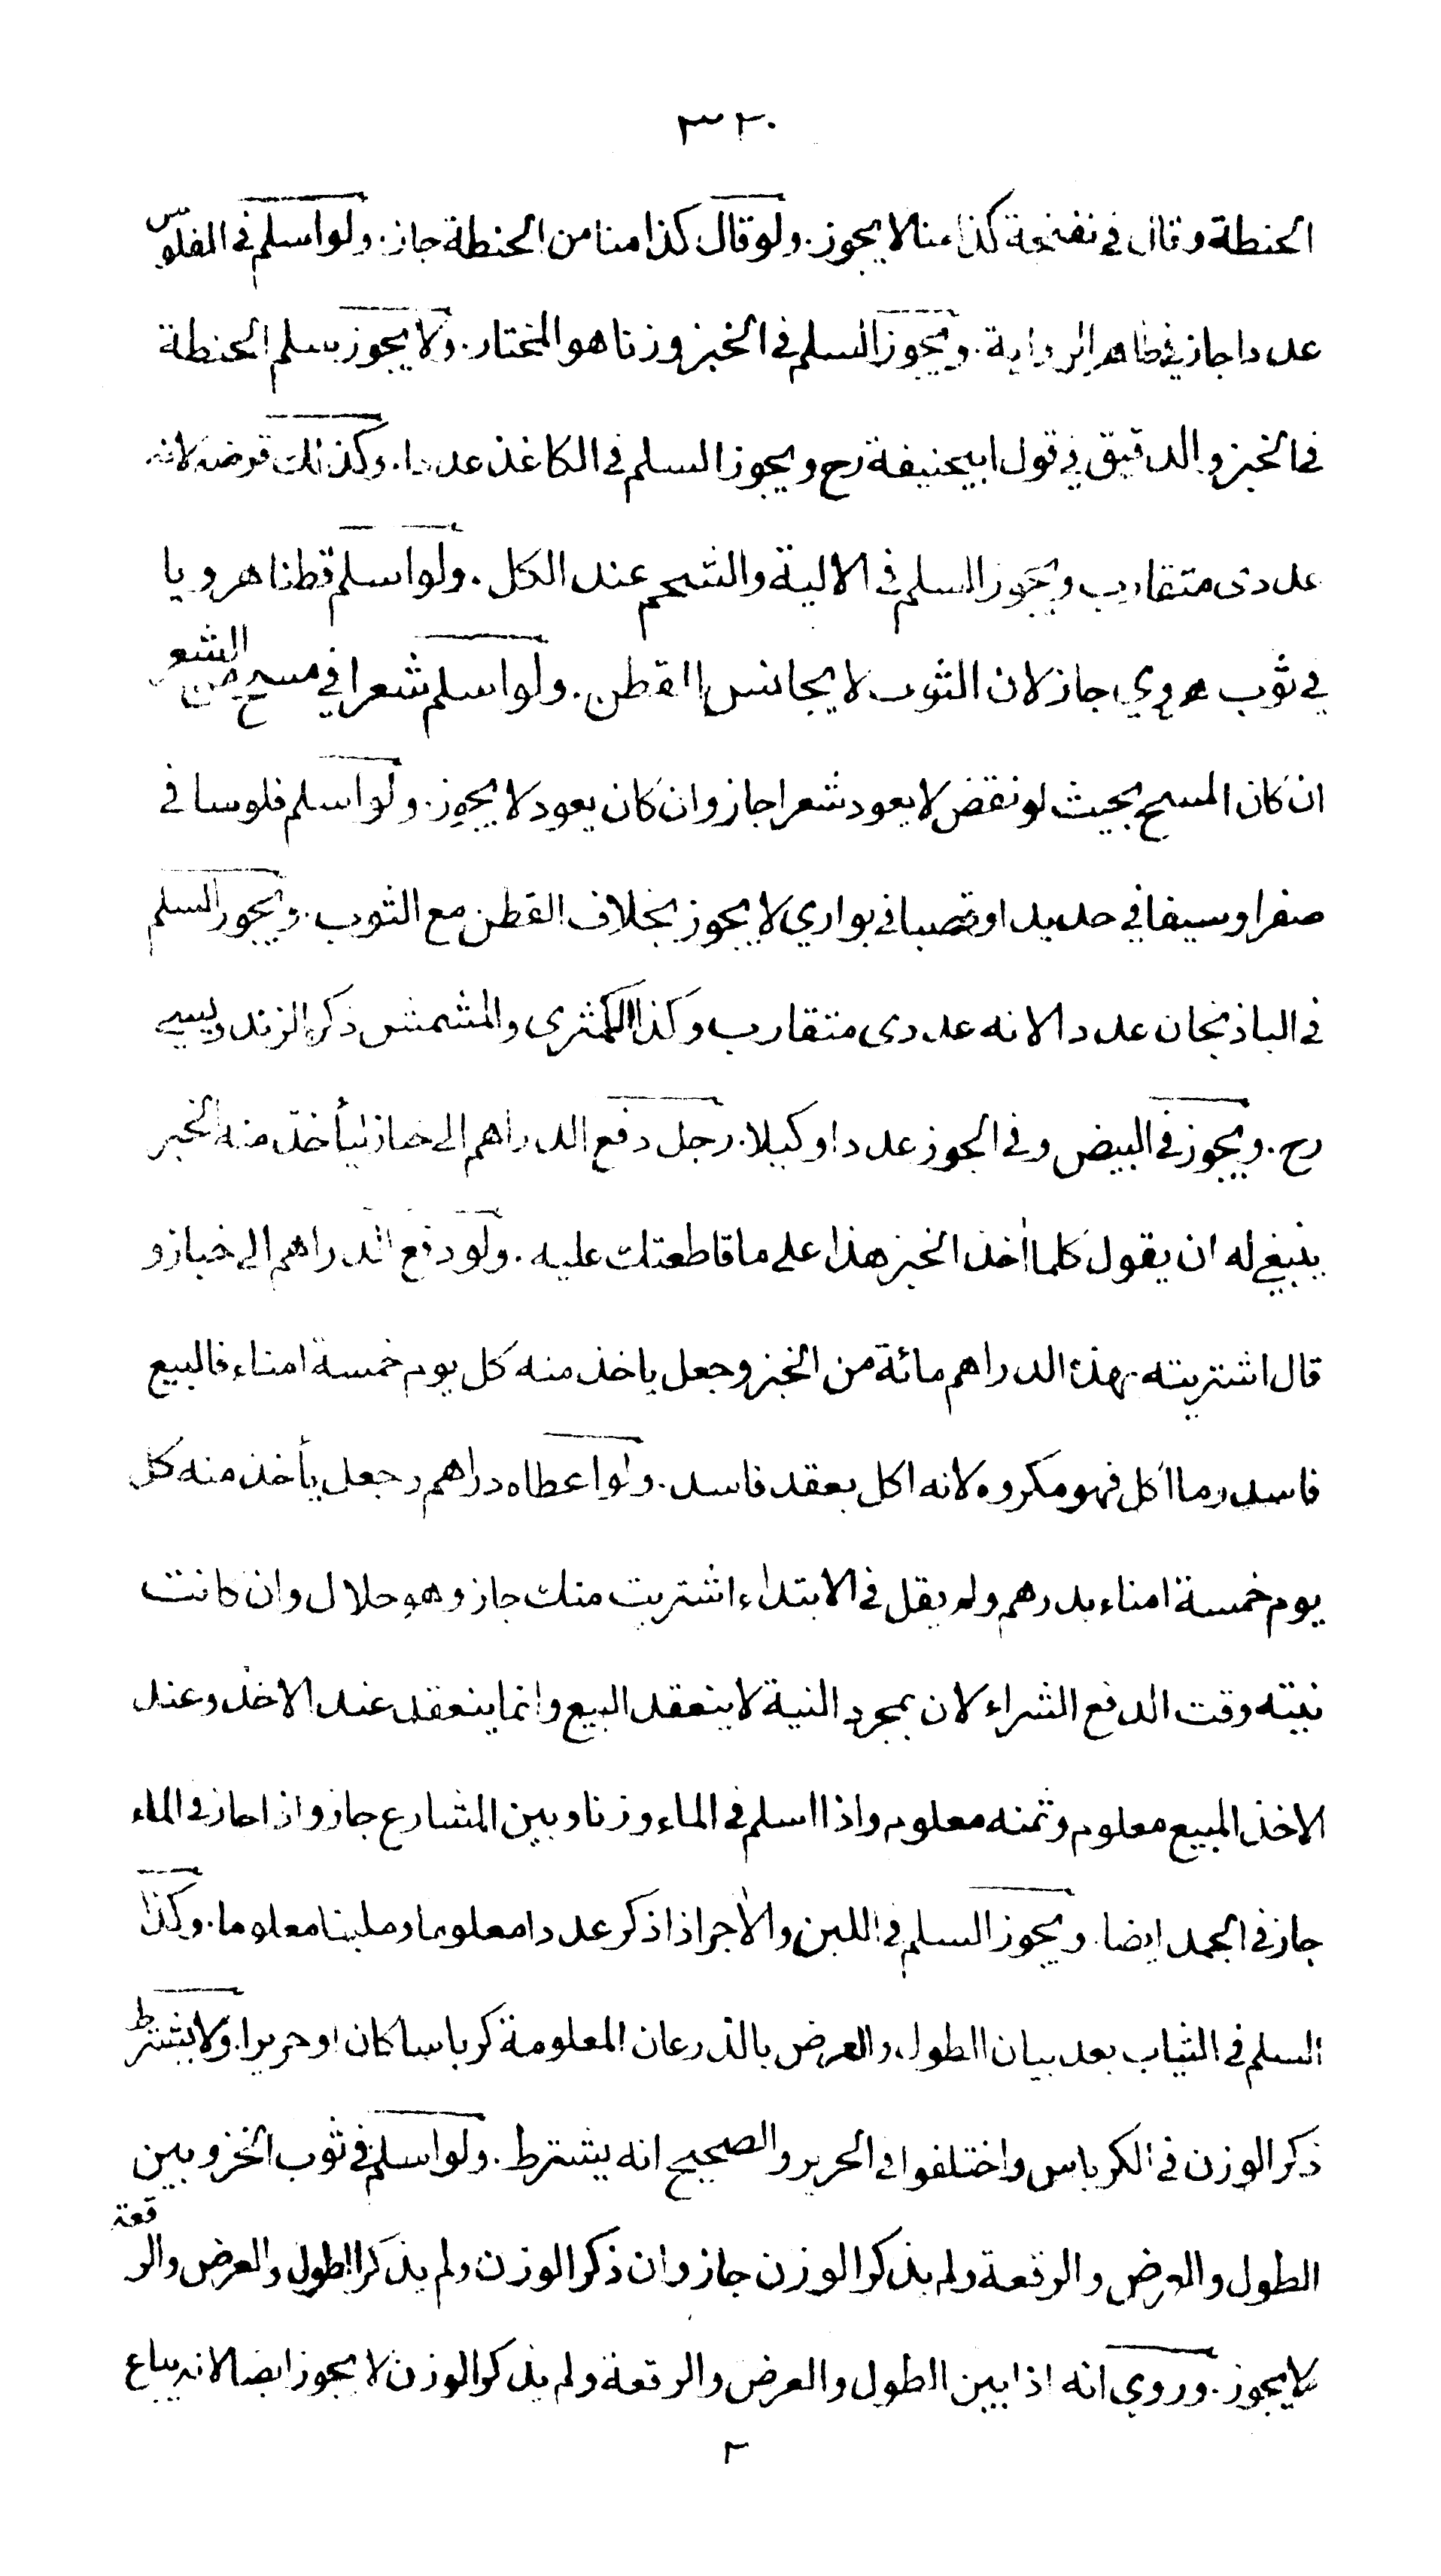 ٣٢٠
الحنطة وقال في نفخة كذا منا لا يجوز. ولو قال كذا منا من الحنطة جاز. ولو اسلم في الفلوس
عددا جاز في ظاهر الرواية. ويجوز السلم في الخبز وزنا هو المختار. ولا يجوز سلم الحنطة
في الخبز والدقيق في قول ابيحنيفة رح ويجوز السلم في الكاغذ عددا. وكذلك قرضه لانه
عددى متقارب ويجوز السلم في الالية والشحم عند الكل. ولو اسلم قطنا هرويا
في ثوب هروي جاز لان الثوب لا يجانس القطن. ولو اسلم شعرا في مسح من الشعر
ان كان المسح بحيث لو نقض لا يعود شعرا جاز وان كان يعود لا يجوز. ولو اسلم فلوسا في
صفر او سيفا في حديد او قصبا في بواري لا يجوز بخلاف القطن مع الثوب. ويجوز السلم
في الباذنجان عددا لانه عددى متقارب وكذا الكمثرى والمشمش ذكره الزندويسي
رح. ويجوز في البيض وفي الجوز عددا وكيلا. رجل دفع الدراهم الى خباز ليأخذ منه الخبز
ينبغي له ان يقول كلما اخذ الخبز هذا على ما قاطعتك عليه. ولو دفع الدراهم الى خباز و
قال اشتريته بهذه الدراهم مائة من الخبز وجعل ياخذ منه كل يوم خمسة امناء فالبيع
فاسد وما اكل فهو مكروه لانه اكل بعقد فاسد. ولو اعطاه دراهم وجعل يأخذ منه كل
يوم خمسة امناء بدرهم ولم يقل في الابتداء اشتريت منك جاز وهو حلال وان كانت
نيته وقت الدفع الشراء لان بمجرد النية لا ينعقد البيع وانما ينعقد عند الاخذ وعند
الاخذ المبيع معلوم وثمنه معلوم واذا اسلم في الماء وزنا وبين المشارع جاز واذا جاز في الماء
جاز في الجمد ايضا. ويجوز السلم في اللبن والاجر اذا ذكر عددا معلوما وملبنا معلوما. وكذا
السلم في الثياب بعد بيان الطول والعرض بالذرعان المعلومة كرباسا كان او حريرا. ولا يشترط
ذكر الوزن في الكرباس واختلفوا في الحرير والصحيح انه يشترط. ولو اسلم في ثوب الخز وبين
الطول والعرض والرقعة ولم يذكر الوزن جاز وان ذكر الوزن ولم يذكر الطول والعرض والرقعة
لا يجوز. وروي انه اذا بين الطول والعرض والرقعة ولم يذكر الوزن لا يجوز ايضا لانه يباع
٢